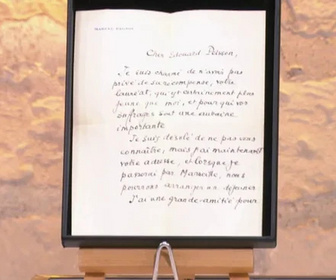 MARCEL PAGNOL
Cher Edouard Peisson,
Je suis
de n'avoir pas
privé de
votre
lauréat, qui est certainement plus
jeune que moi, et pour qui vos
suffrages sont une aubaine
importante
Je suis désolé de ne pas vous
connaître, mais j'ai maintenant
votre adresse, et lorsque je
passerai par Marseille, nous
pourrons arranger un déjeuner
J'ai une grande amitié pour